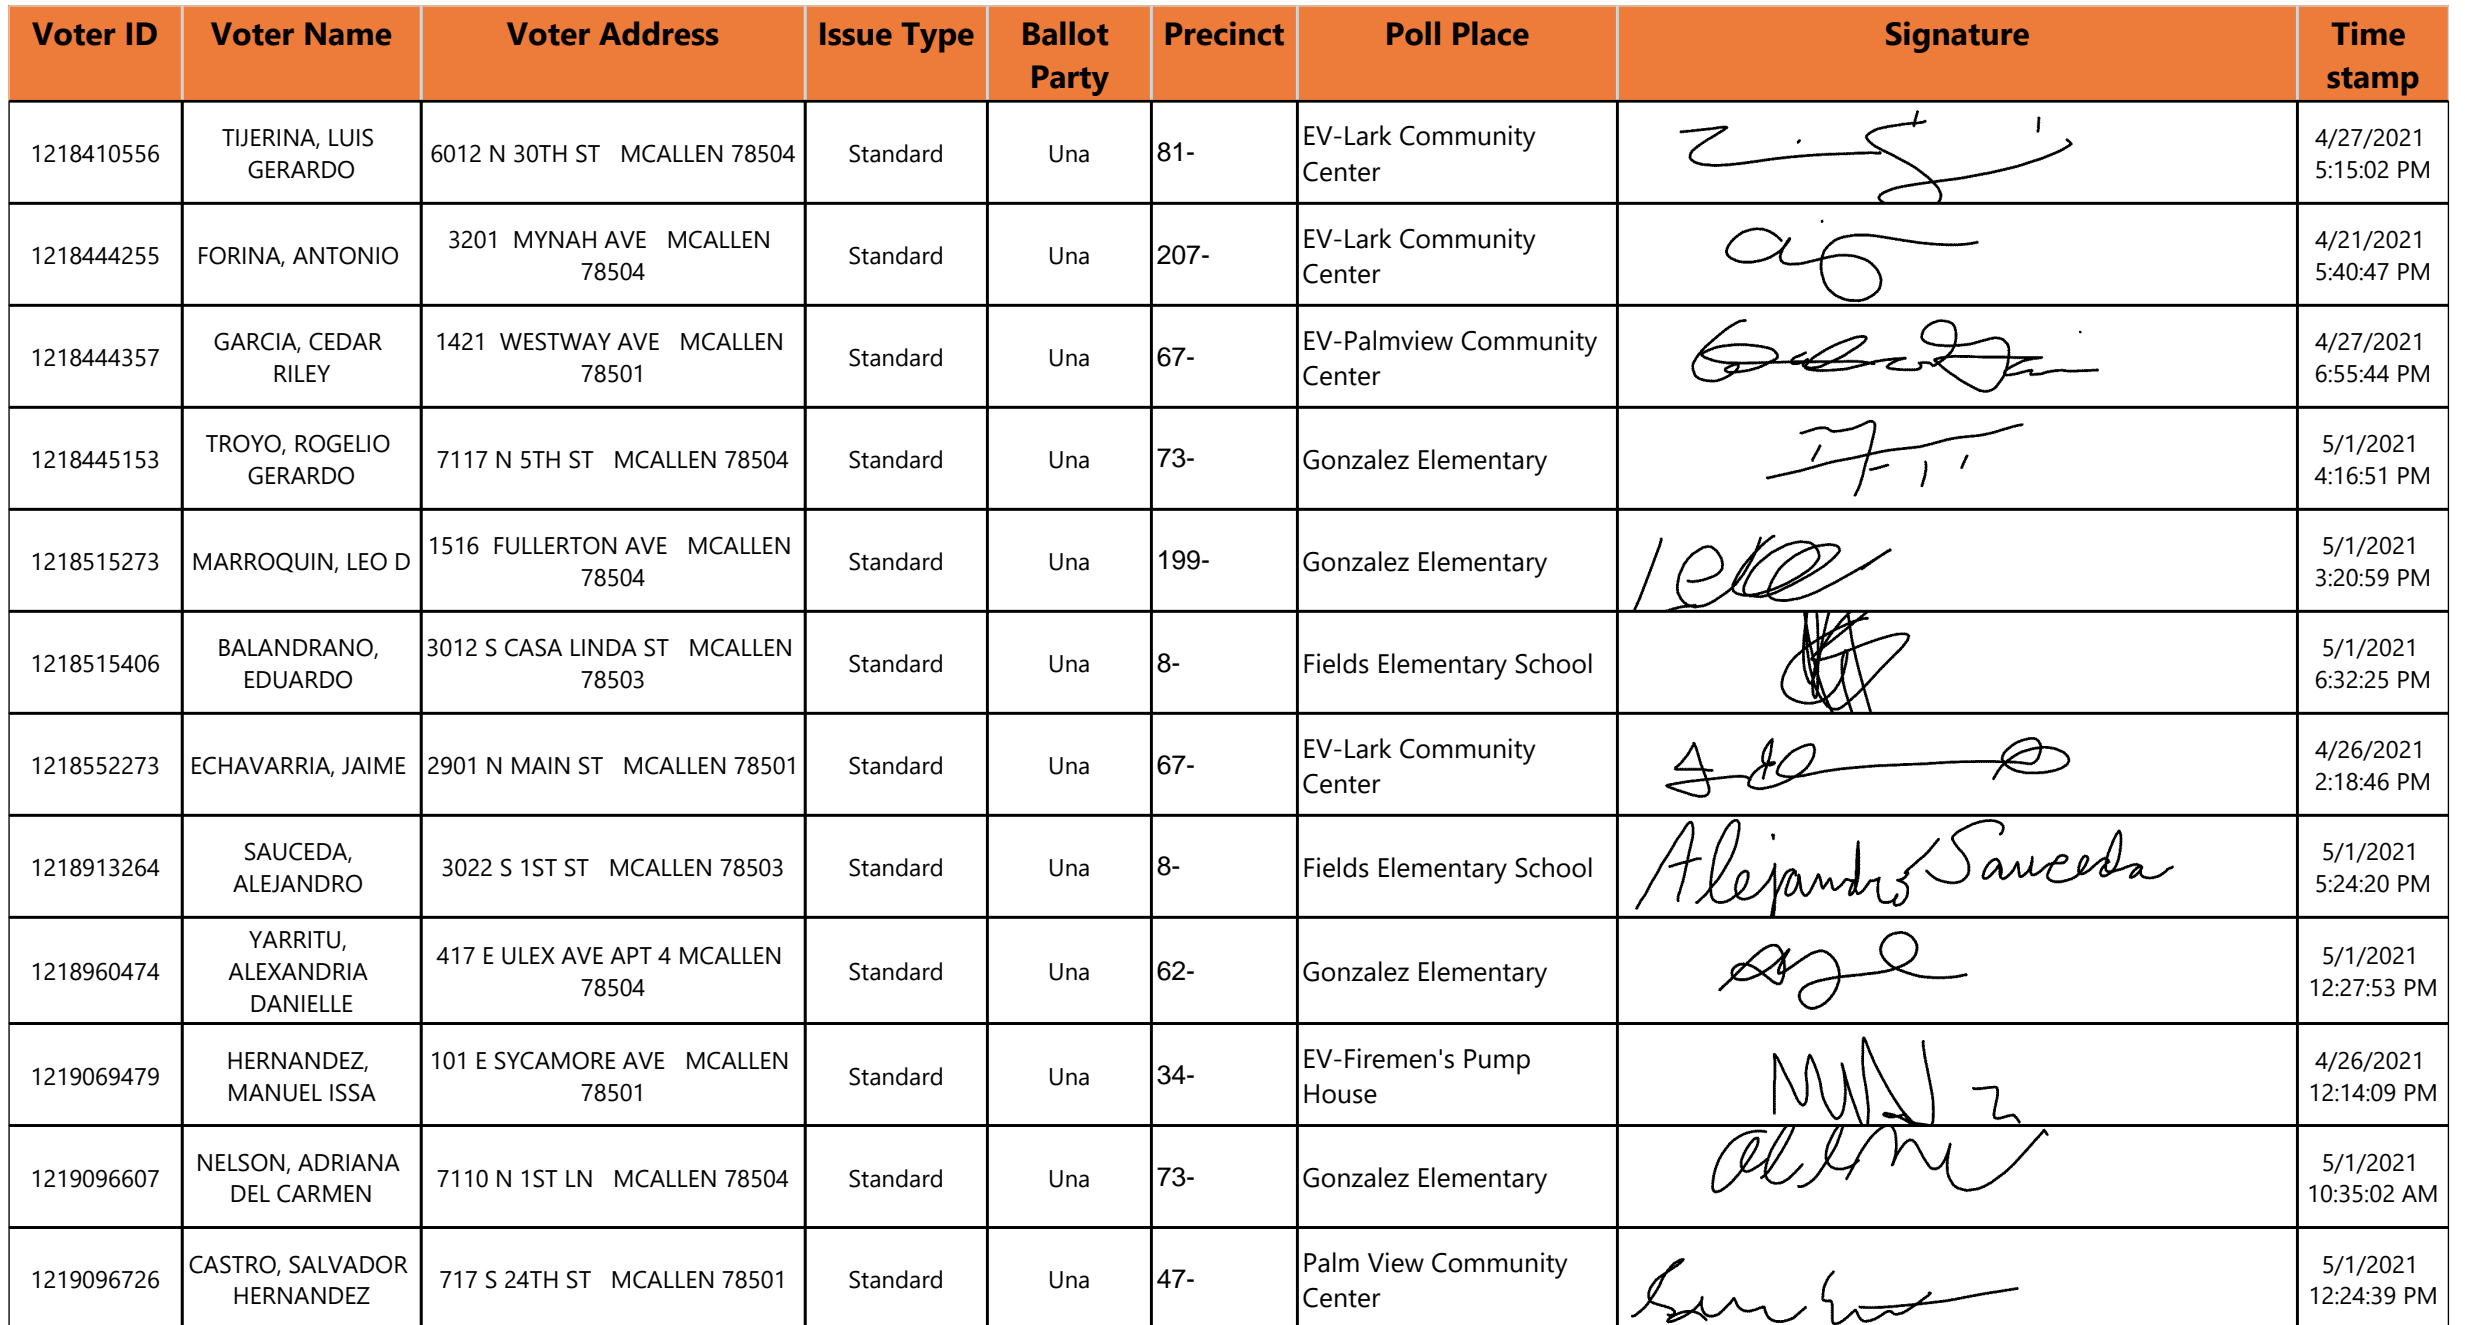 Voter ID Voter Name Voter Address Issue Type Ballot Party Precinct Poll Place Signature Time stamp
1218410556 TIJERINA, LUIS GERARDO 6012 N 30TH ST MCALLEN 78504 Standard Una 81- EV-Lark Community Center 4/27/2021 5:15:02 PM
1218444255 FORINA, ANTONIO 3201 MYNAH AVE MCALLEN 78504 Standard Una 207- EV-Lark Community Center 4/21/2021 5:40:47 PM
1218444357 GARCIA, CEDAR RILEY 1421 WESTWAY AVE MCALLEN 78501 Standard Una 67- EV-Palmview Community Center 4/27/2021 6:55:44 PM
1218445153 TROYO, ROGELIO GERARDO 7117 N 5TH ST MCALLEN 78504 Standard Una 73- Gonzalez Elementary 5/1/2021 4:16:51 PM
1218515273 MARROQUIN, LEO D 1516 FULLERTON AVE MCALLEN 78504 Standard Una 199- Gonzalez Elementary 5/1/2021 3:20:59 PM
1218515406 BALANDRANO, EDUARDO 3012 S CASA LINDA ST MCALLEN 78503 Standard Una 8- Fields Elementary School 5/1/2021 6:32:25 PM
1218552273 ECHAVARRIA, JAIME 2901 N MAIN ST MCALLEN 78501 Standard Una 67- EV-Lark Community Center 4/26/2021 2:18:46 PM
1218913264 SAUCEDA, ALEJANDRO 3022 S 1ST ST MCALLEN 78503 Standard Una 8- Fields Elementary School Alejandro Sauceda 5/1/2021 5:24:20 PM
1218960474 YARRITU, ALEXANDRIA DANIELLE 417 E ULEX AVE APT 4 MCALLEN 78504 Standard Una 62- Gonzalez Elementary 5/1/2021 12:27:53 PM
1219069479 HERNANDEZ, MANUEL ISSA 101 E SYCAMORE AVE MCALLEN 78501 Standard Una 34- EV-Firemen's Pump House 4/26/2021 12:14:09 PM
1219096607 NELSON, ADRIANA DEL CARMEN 7110 N 1ST LN MCALLEN 78504 Standard Una 73- Gonzalez Elementary 5/1/2021 10:35:02 AM
1219096726 CASTRO, SALVADOR HERNANDEZ 717 S 24TH ST MCALLEN 78501 Standard Una 47- Palm View Community Center 5/1/2021 12:24:39 PM